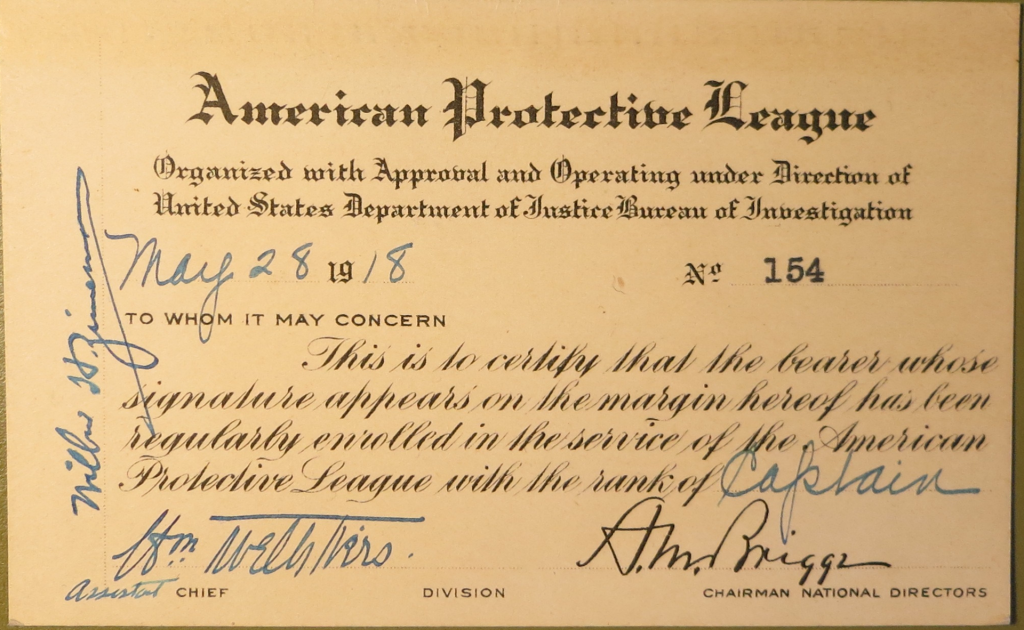 American Protective League
Organized with Approval and Operating under Direction of
United States Department of Justice Bureau of Investigation
May 28 1918 No 154
TO WHOM IT MAY CONCERN
This is to certify that the bearer whose
signature appears on the margin hereof has been
regularly enrolled in the service of the American
Protective League with the rank of Captain
Wm
A.M. Briggs
Assistant CHIEF DIVISION CHAIRMAN NATIONAL DIRECTORS
Wilbur H.